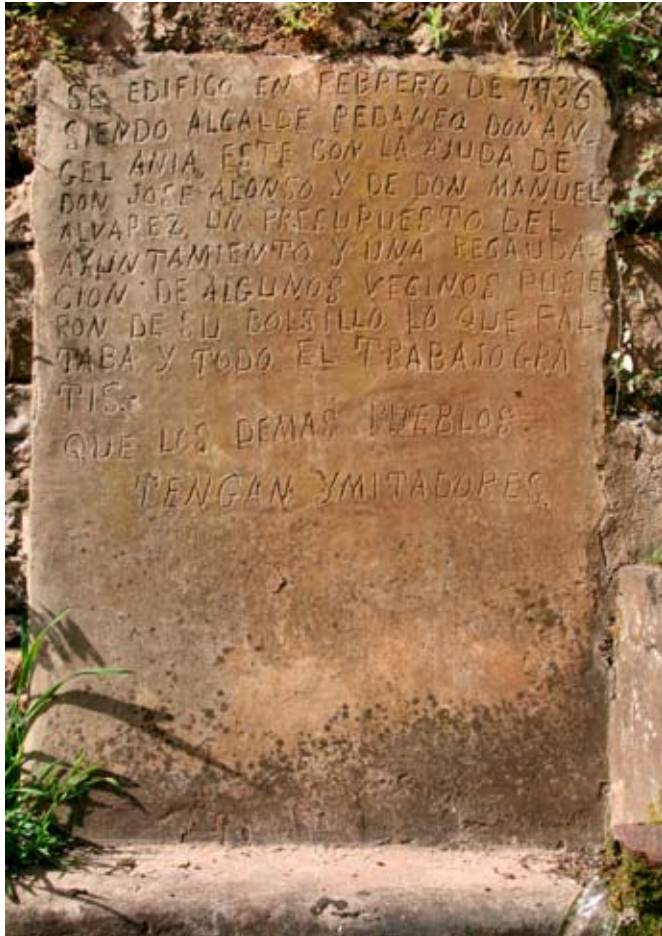 SE EDIFICO EN FEBRERO DE 1,936
SIENDO ALCALDE PEDANEO DON AN-
GEL ANIA, ESTE CON LA AJUDA DE
DON JOSE ALONSO Y DE DON MANUEL
ALVAREZ, UN PRESUPUESTO DEL
AYUNTAMIENTO Y UNA RECAUDA-
CION DE ALGUNOS VECINOS PUSIE
RON DE SU BOLSILLO LO QUE FAL-
TABA Y TODO EL TRABAJO GRA-
TIS.-
QUE LOS DEMAS PUEBLOS-
TENGAN YMITADORES.